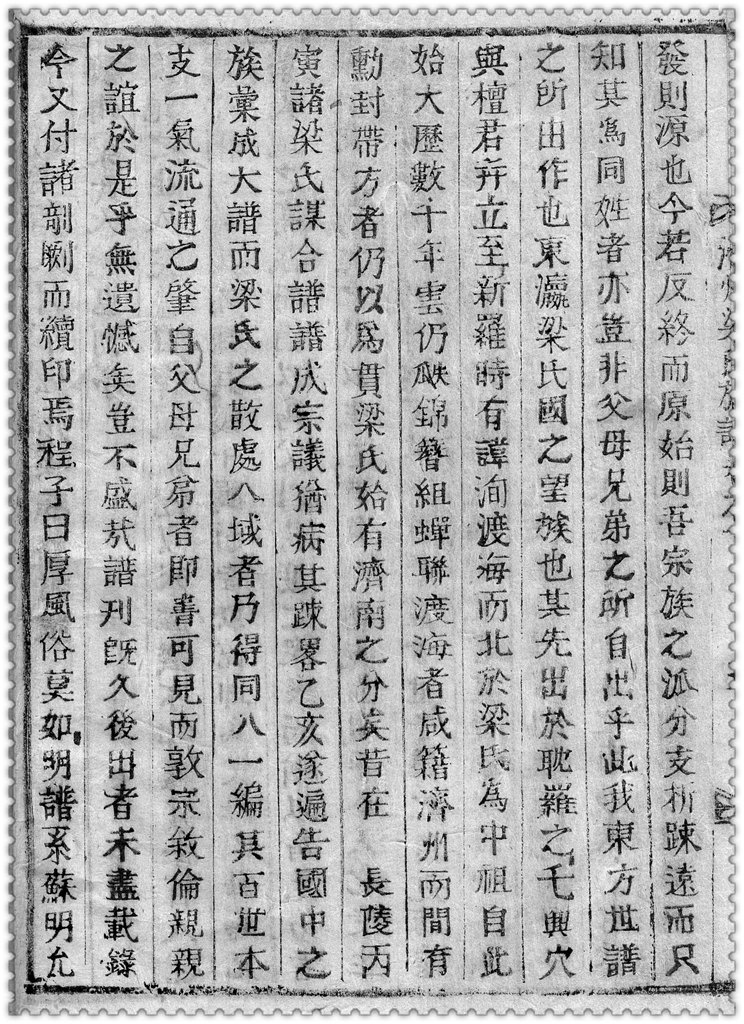 發則源也今若反終而原始則吾宗族之派分支析踈遠而只
知其爲同姓者亦豈非父母兄弟之所自出乎此我東方世譜
之所由作也東瀛梁氏國之望族也其先出於耽羅之毛興穴
與檀君幷立至新羅時有諱洵渡海而北於梁氏爲中祖自此
始大歷數千年雲仍瓞錦簪組蟬聯渡海者咸籍濟州而間有
勳封帶方者仍以爲貫梁氏始有濟南之分矣昔在 長陵丙
寅諸梁氏謀合譜譜成宗議猶病其踈畧乙亥遂遍告國中之
族彙成大譜而梁氏之散處八域者乃得同八一編其百世本
支一氣流通之肇自父母兄弟者卽書可見而敦宗敘倫親親
之誼於是乎無遺憾矣豈不盛哉譜刊旣久後出者未盡載錄
今又付諸剞劂而續印焉程子曰厚風俗莫如明譜系蘇明允